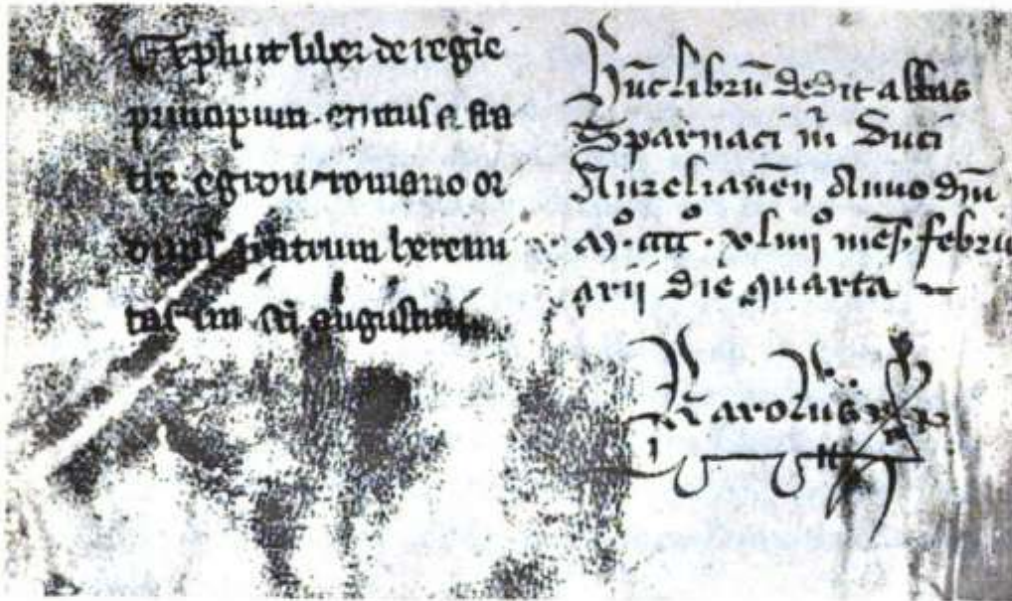 Explicit liber de regīe
principum · editus a fra
tre egidio romano or
dinis fratrum heremi
tarum sci augustini
Hūc librū dedit abbas
Sparnaci m̄ Duci
Aurelianēn Anno dm̄
Mº·cccº·xliiijº mēs. februa
arij die quarta
Karolus